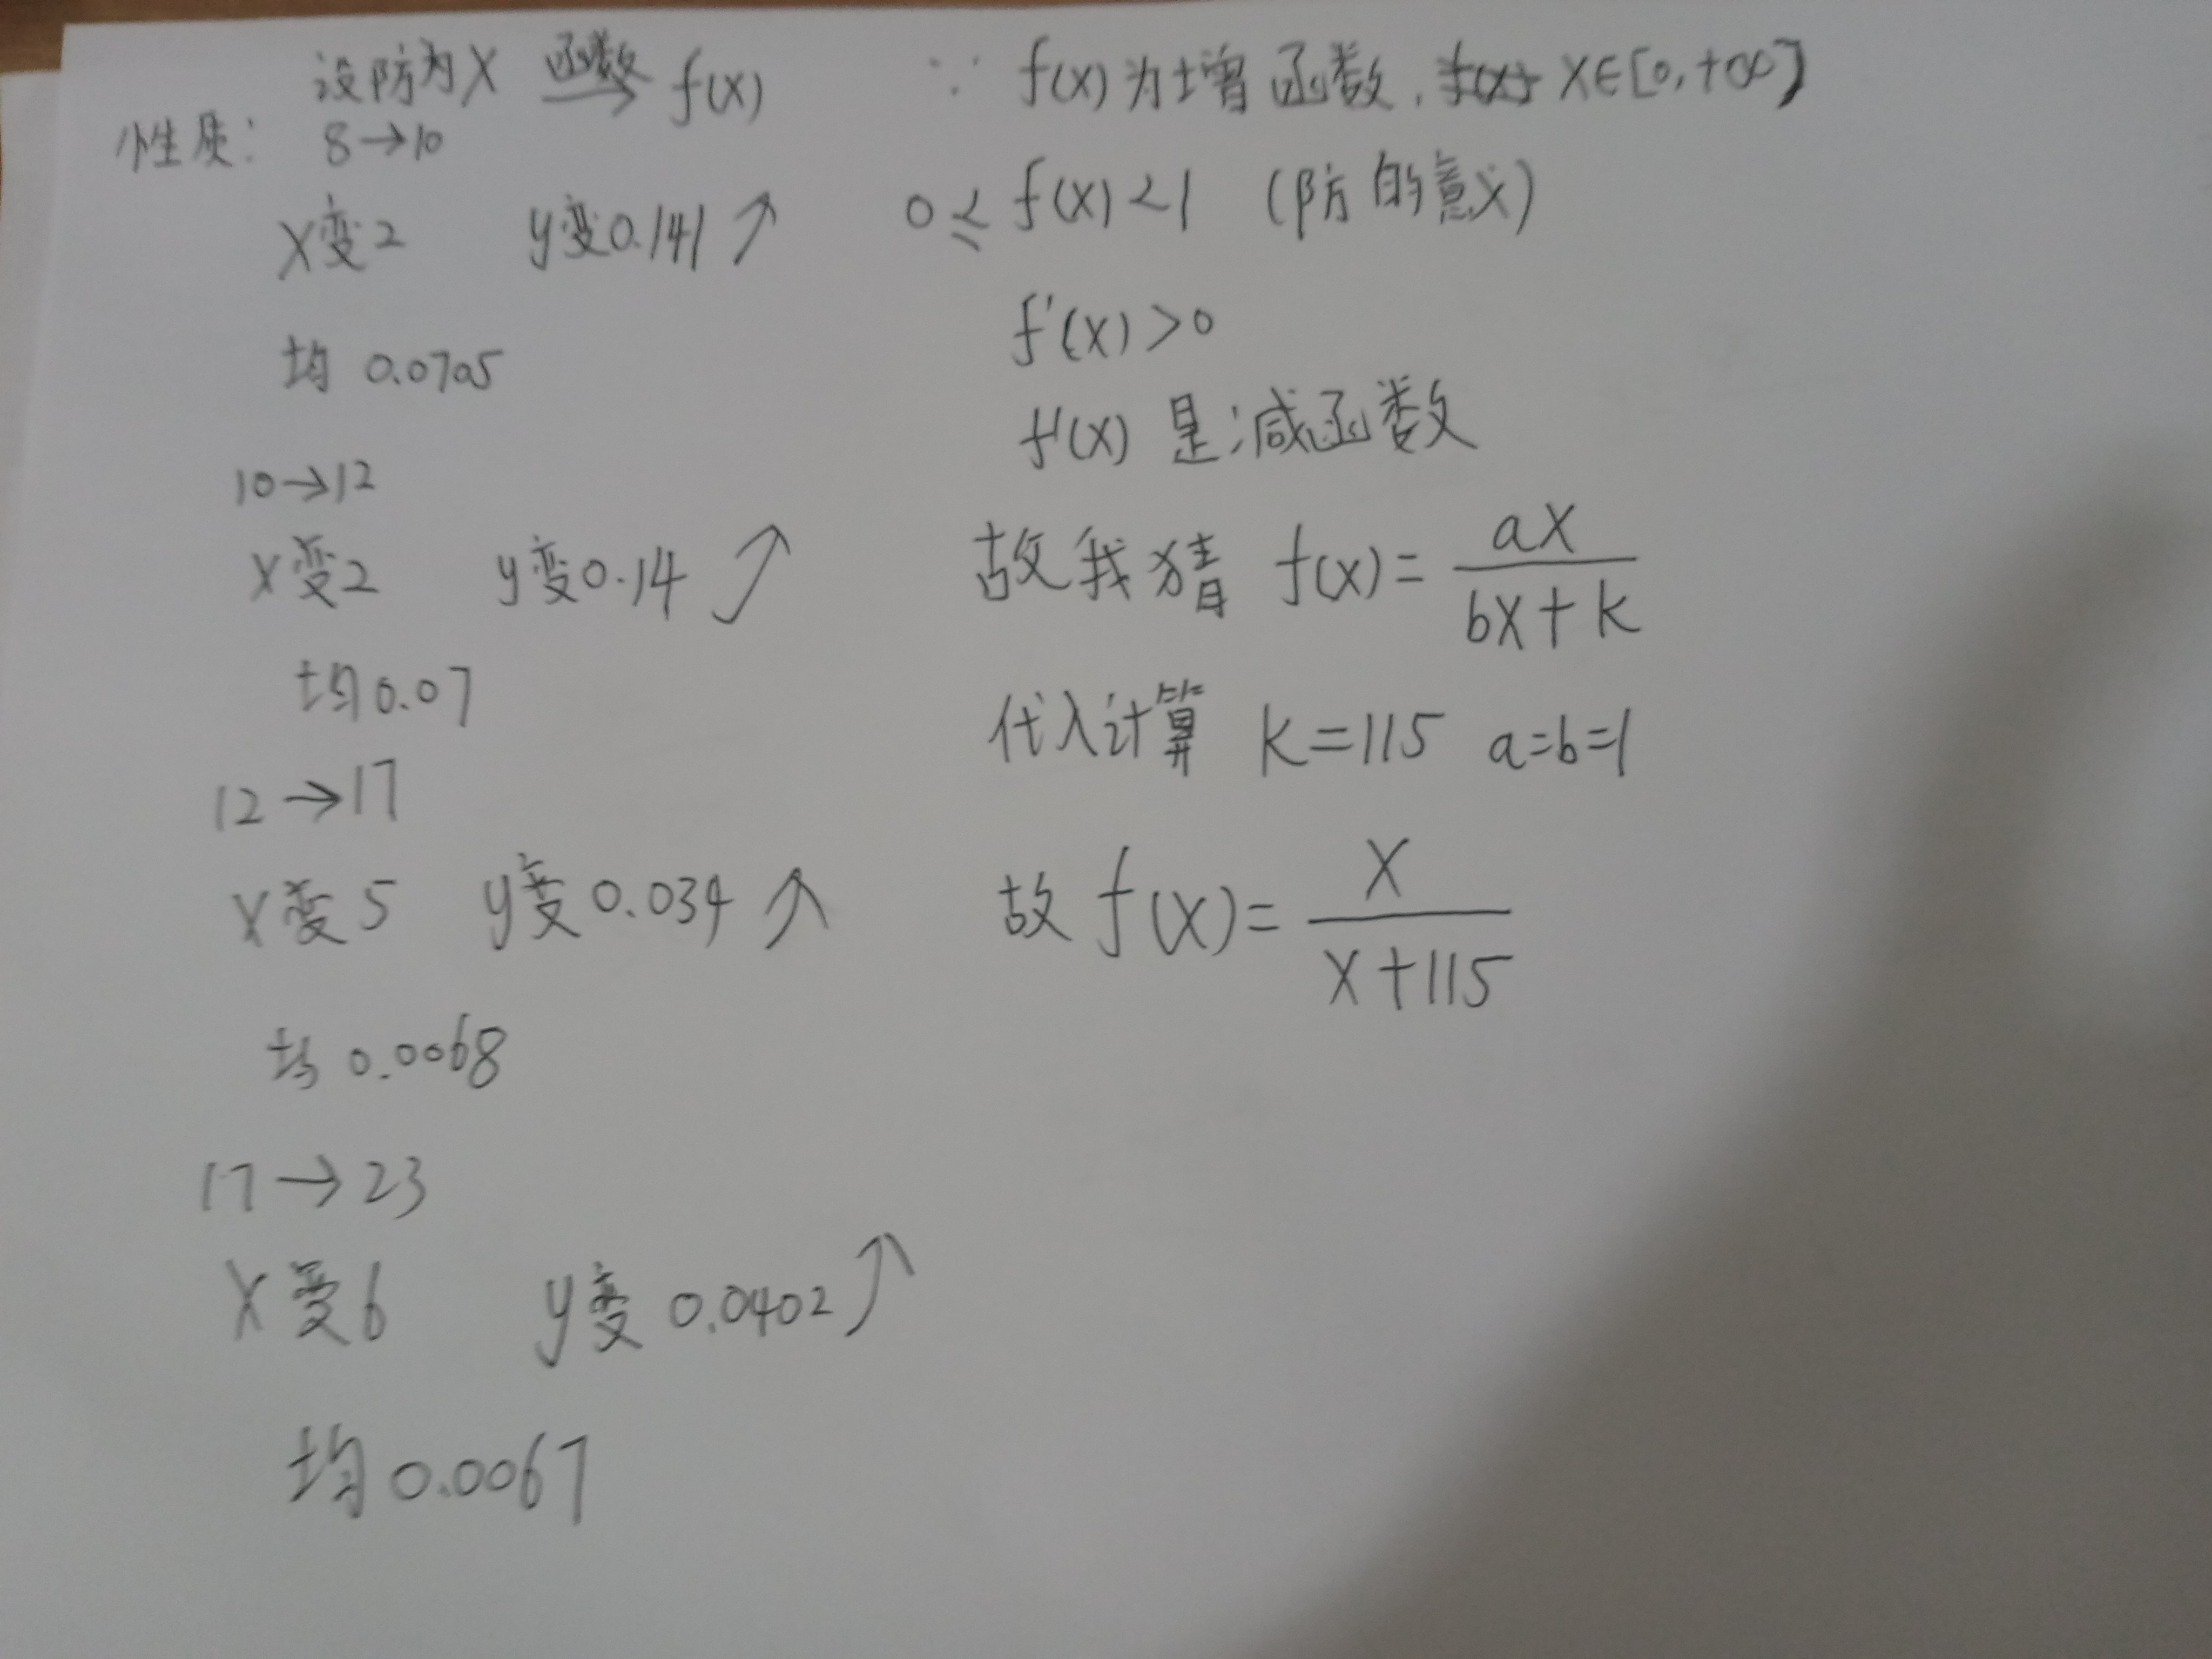 设防为X 函数→ f(x)
性质: 8→10
X变2 y变0.141↗
均 0.0705
10→12
X变2 y变0.14↗
均0.07
12→17
X变5 y变0.034↗
均 0.0068
17→23
X变6 y变0.0402↗
均0.0067
∵ f(x)为增函数, X∈[0,+∞]
0≤f(x)<1 (防的意义)
f'(x)>0
f'(x)是减函数
故我猜 f(x)=ax/(bx+k)
代入计算 k=115 a=b=1
故 f(x)=x/(x+115)